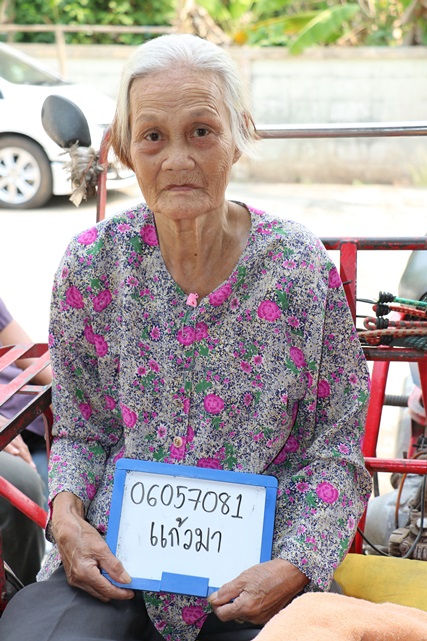 06057081
แก้วมา